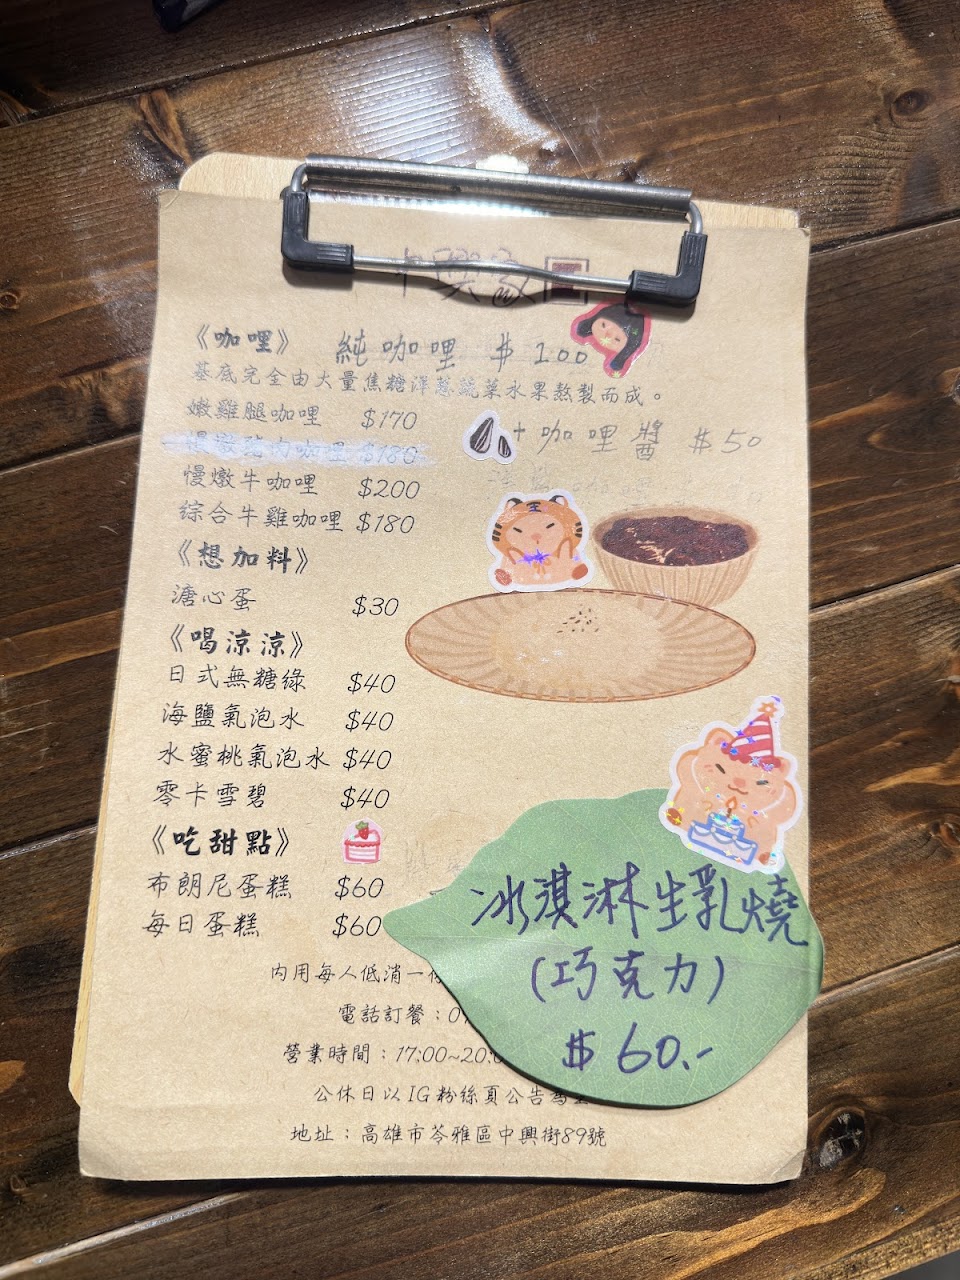 《咖哩》 純咖哩 $100
基底完全由大量焦糖洋蔥蔬菜水果熬製而成。
嫩雞腿咖哩 $170
+咖哩醬 $50
慢燉豬肉咖哩 $180
慢燉牛咖哩 $200
綜合牛雞咖哩 $180
《想加料》
溏心蛋 $30
《喝涼涼》
日式無糖綠 $40
海鹽氣泡水 $40
水蜜桃氣泡水 $40
零卡雪碧 $40
《吃甜點》
布朗尼蛋糕 $60
每日蛋糕 $60
冰淇淋生乳燒
(巧克力)
$60.-
內用每人低消一
電話訂餐：0
營業時間：17:00~20:
公休日以IG粉絲頁公告為
地址：高雄市苓雅區中興街89號